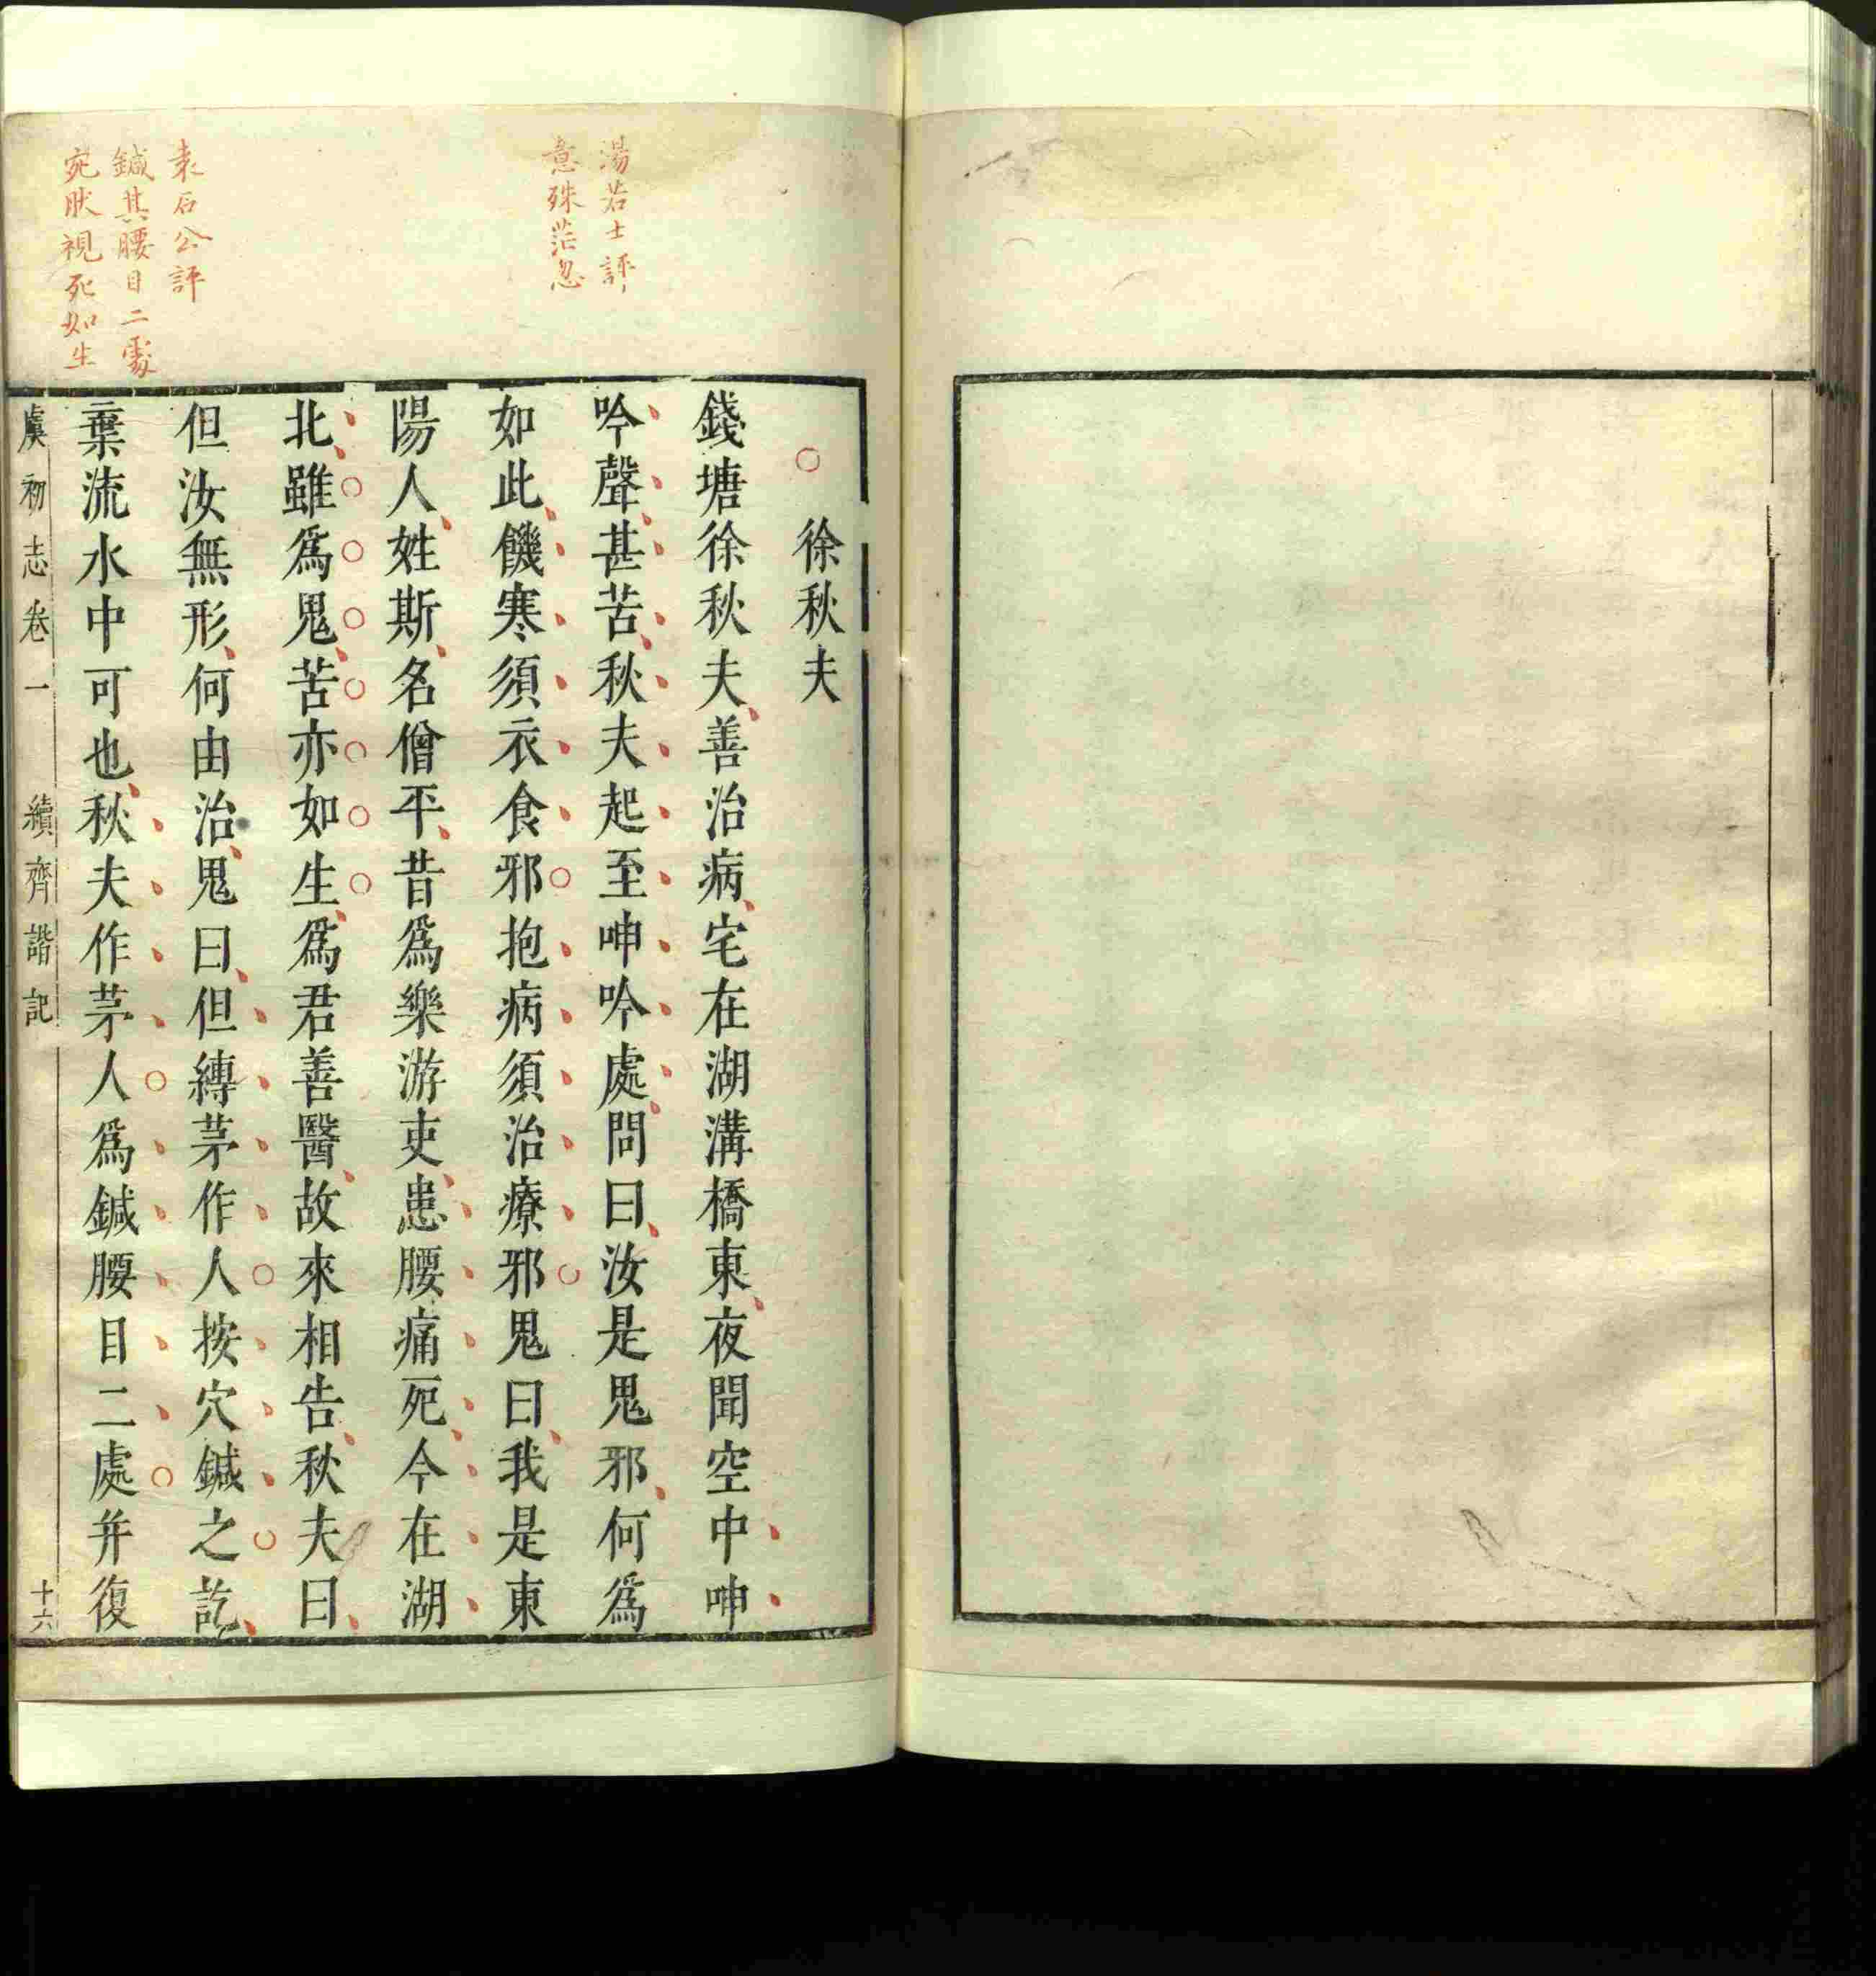 湯若士評
意殊茫忽
袁石公評
鍼其腰目二處
宛肰視死如生
徐秋夫
錢塘徐秋夫善治病宅在湖溝橋東夜聞空中呻
吟聲甚苦秋夫起至呻吟處問曰汝是鬼邪何爲
如此饑寒須衣食邪抱病須治療邪鬼曰我是東
陽人姓斯名僧平昔爲樂游吏患腰痛死今在湖
北雖爲鬼苦亦如生爲君善醫故來相告秋夫曰
但汝無形何由治鬼曰但縛茅作人按穴鍼之訖
棄流水中可也秋夫作茅人爲鍼腰目二處并復
虞初志卷一
續齊諧記
十六